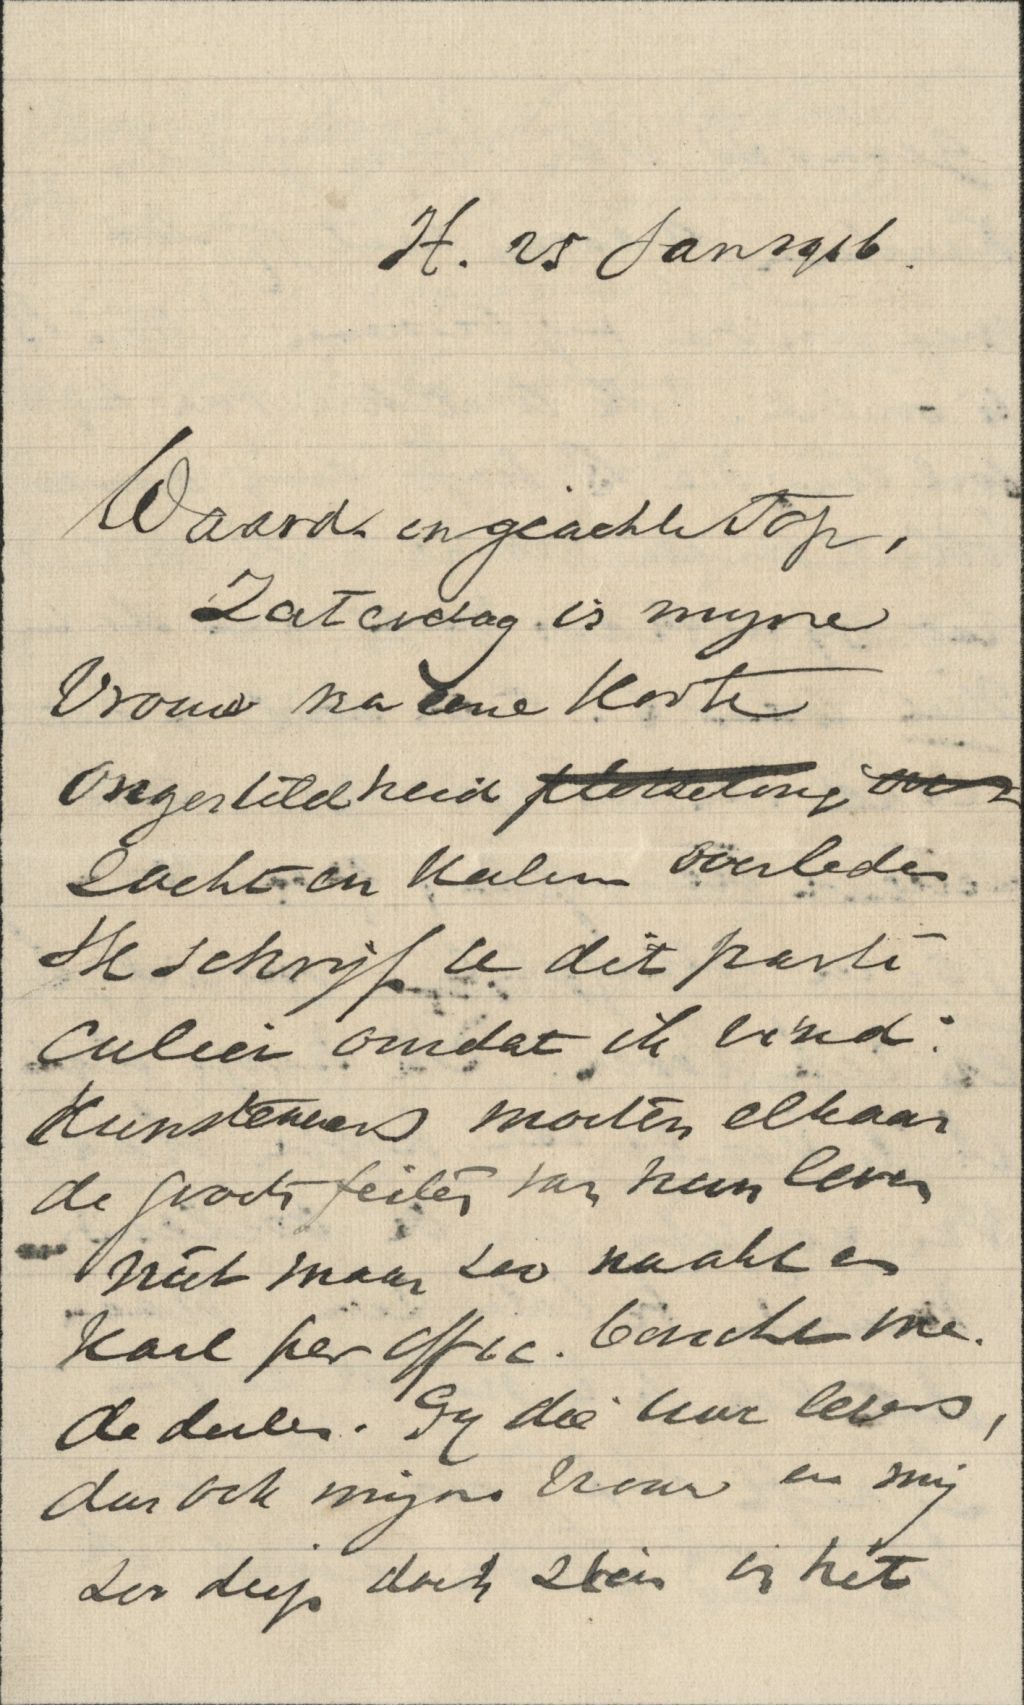 H. 25 Jan 1916.
Waarde en geachte Top,
Zaterdag is myne
Vrouw na eene korte
ongesteldheid plotseling over
zacht en kalm overleden
Ik schrijf U dit parti
culier omdat ik vind:
Kunstenaars moeten elkaar
de groote feiten van hun leven
niet maar zoo naakt en
kaal per offic. bericht me.
dedeelen. Gy die uwe levens,
dus ook mijne vrouw en mij
zoo diep doet zien in het